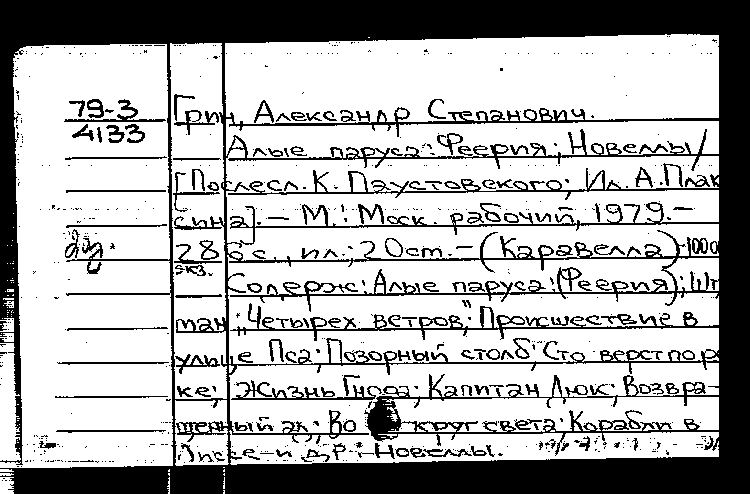 79-3
4133
Грин, Александр Степанович.
Алые паруса: Феерия; Новеллы/
[Послесл. К. Паустовского; Ил. А. Плак
сина]. – М.: Моск. рабочий, 1979.–
286 с., ил.; 20 см. – (Каравелла) 1000
экз.
Содерж: Алые паруса: (Феерия);
ман „Четырех ветров"; Происшествие в
улице Пса; Позорный столб; Сто верст по р
ке; Жизнь Гнора; Капитан Дюк; Возвра-
щенный ад; Во круг света; Корабли в
Лиссе и др.: Новеллы.